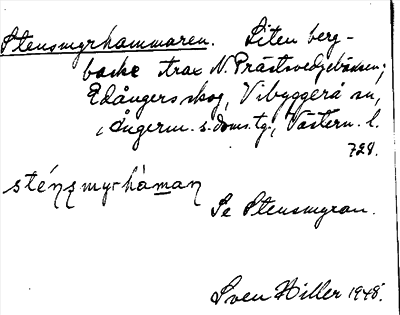 Stensmyrhammaren. Liten berg-
backe strax N. Prästsvedjebäcken;
Edångers skog, Vibyggerå sn,
Ångerm. s. doms.tg., Västern. l.
728.
sténsmyrhàman
Se Stensmyran.
Sven Hiller 1948.